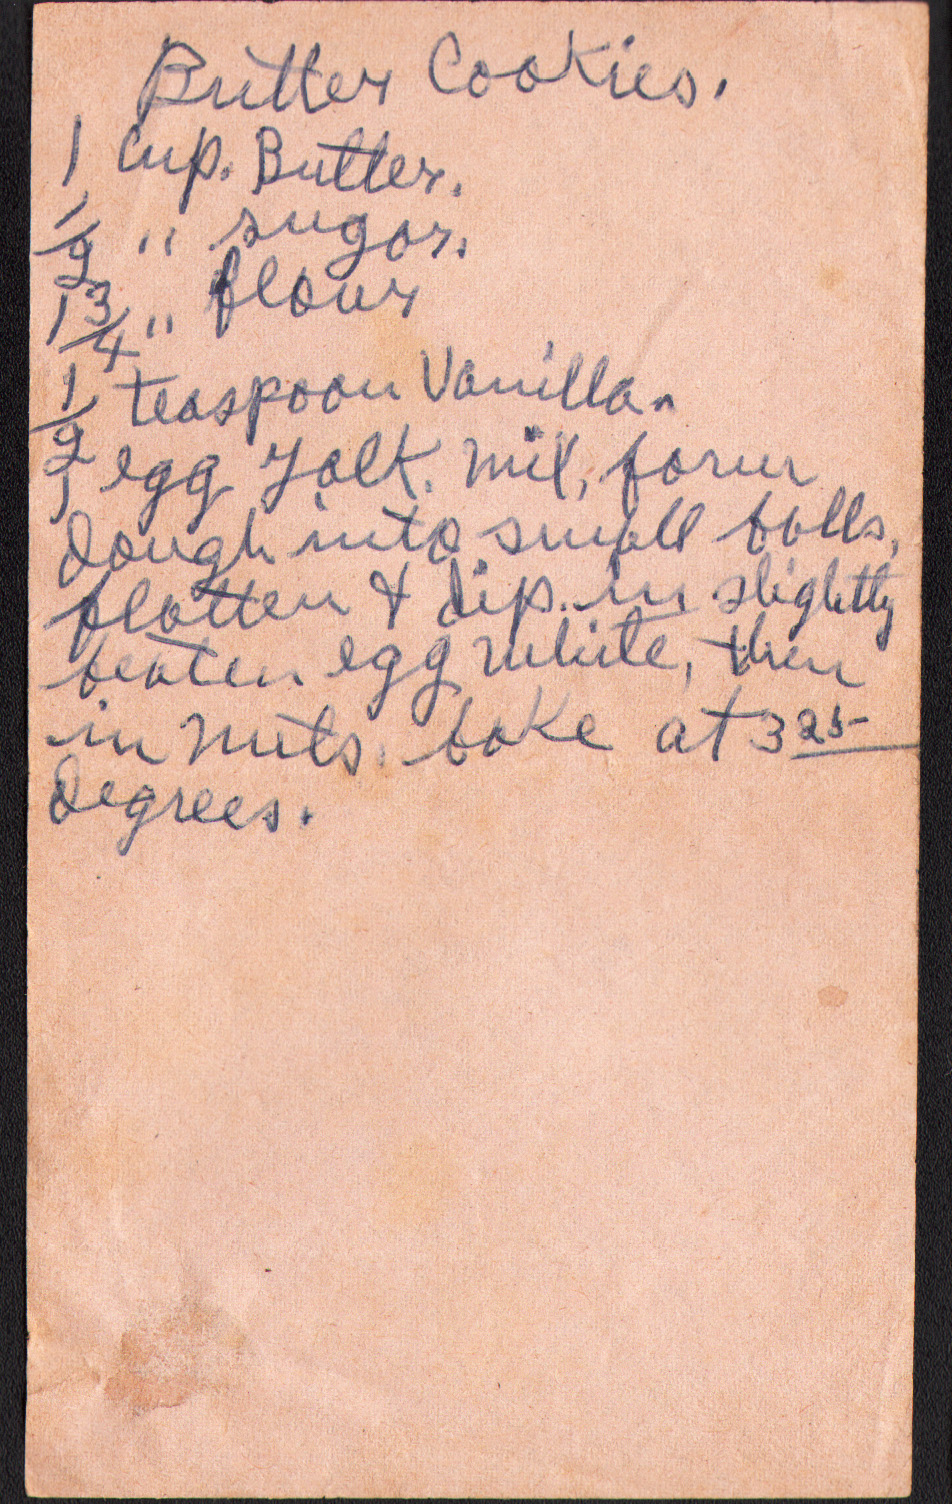 Butter Cookies.
1 Cup. Butter.
1/2 " sugar.
1 3/4 " flour
1/2 teaspoon Vanilla.
1 egg Yolk. Mix, form
dough into small balls,
flatten & dip. in slightly
beaten egg white, then
in nuts. bake at 325
degrees.